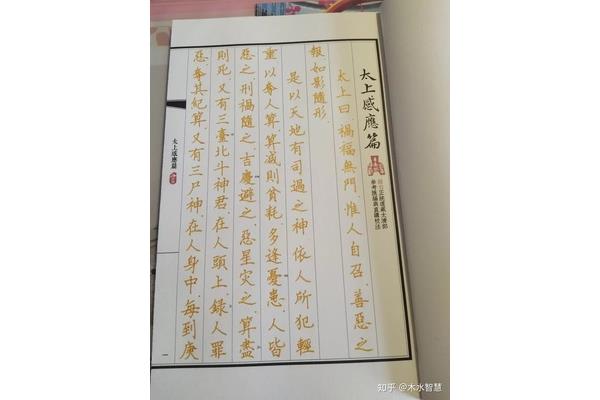 太上感應篇
正統道藏太清部
參考焦竑與袁講校法
太上曰、禍福無門、惟人自召、善惡之
報、如影隨形、
是以天地有司過之神依人所犯輕
重以奪人算、算減則貧耗、多逢憂患、人皆
惡之、刑禍隨之、吉慶避之、惡星灾之、算盡
則死、又有三臺北斗神君、在人頭上、錄人罪
惡、奪其紀算、又有三尸神、在人身中、每到庚
太上感應篇
一
知乎 @木水智慧